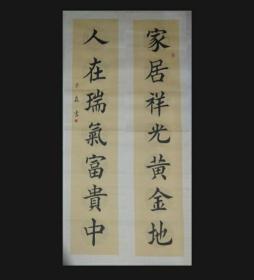 家居祥光黃金地
人在瑞氣富貴中